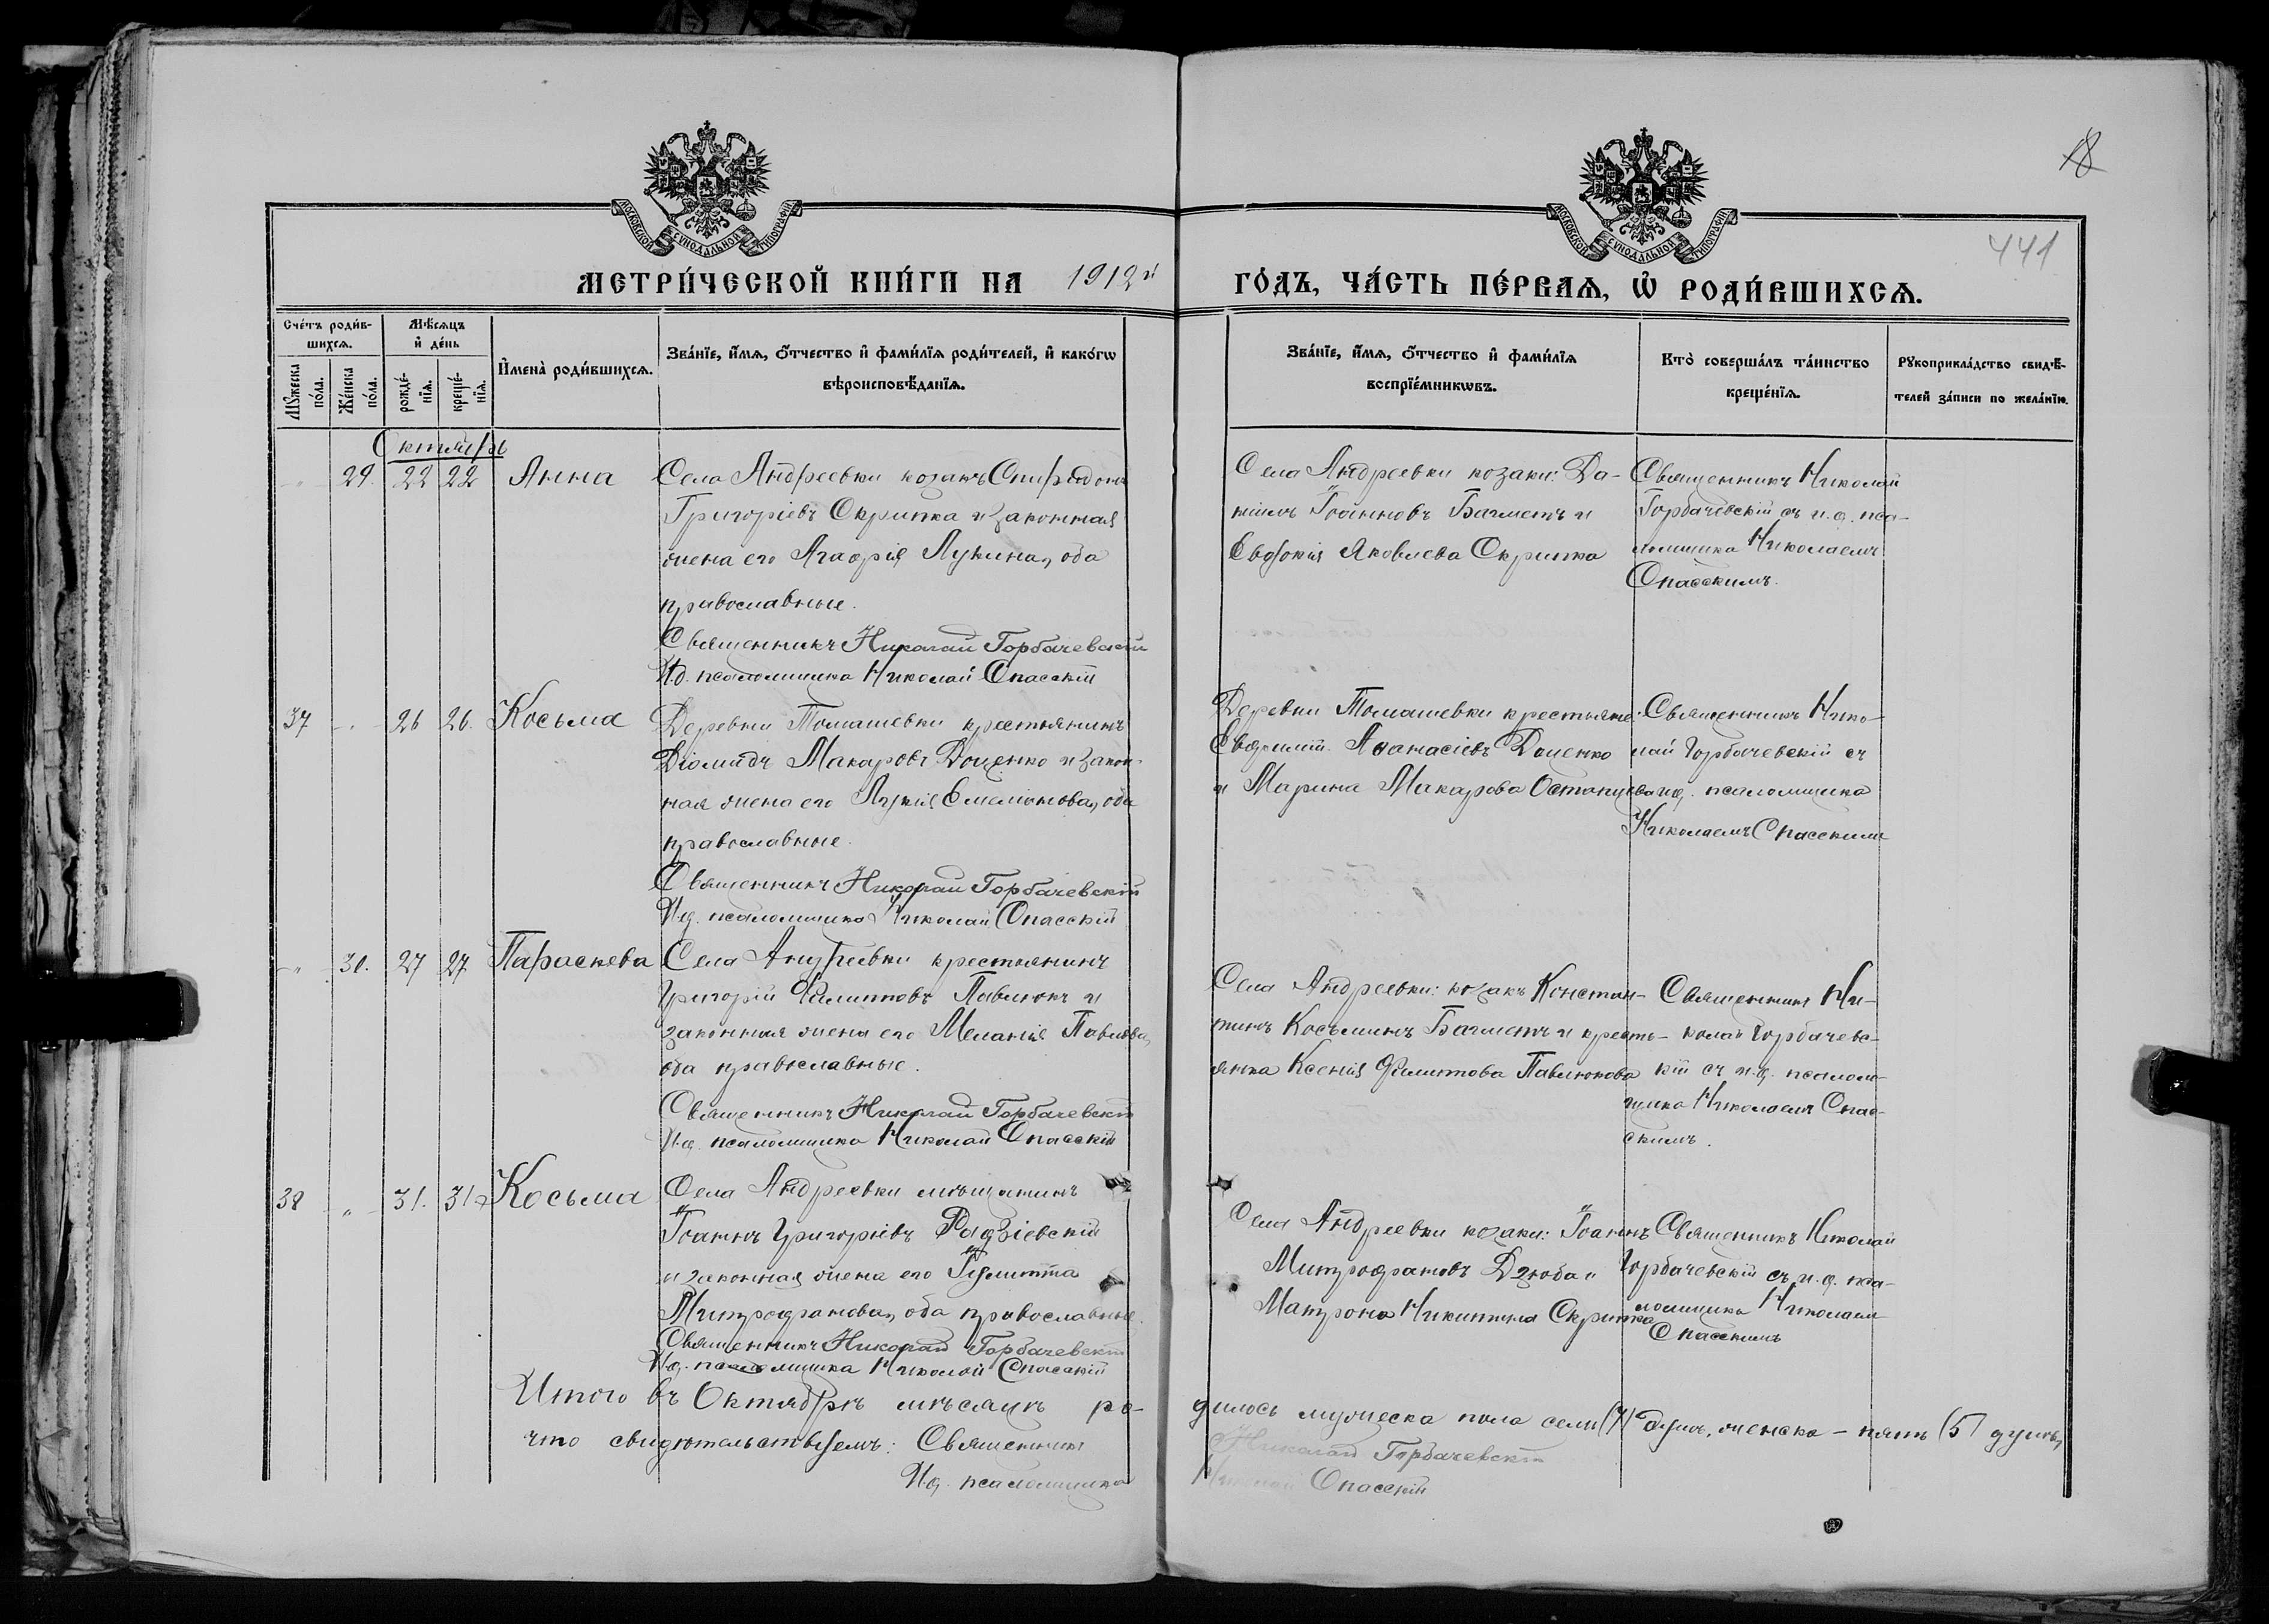 18
441
МОСКОВСКОЙ СУНОДАЛЬНОЙ ТИПОГРАФІИ
МОСКОВСКОЙ СУНОДАЛЬНОЙ ТИПОГРАФІИ
МЕТРИ́ЧЕСКОЙ КНИ́ГИ НА 1912й ГО́ДЪ, ЧА́СТЬ ПЕ́РВАѦ, Ѡ РОДИ́ВШИХСѦ.
Сче́тъ роди́в-
шихсѧ.
Мꙋжеска по́ла.
Же́нска по́ла.
Мѣ́сѧцъ
и҆ де́нь
рожде́-
нїѧ.
креще́-
нїѧ.
И҆мена̀ роди́вшихсѧ.
Зва́нїе, и҆́мѧ, ѻ҆́тчество и҆ фами́лїѧ роди́телей, и҆ како́гѡ
вѣроисповѣ́данїѧ.
Зва́нїе, и҆́мѧ, ѻ҆́тчество и҆ фами́лїѧ
воспрїе́мникѡвъ.
Кто̀ соверша́лъ та́инство
креще́нїѧ.
Рꙋкоприкла́дство свидѣ́-
телей за́писи по жела́нїю.
Октябрь
29. 22 22 Анна
Села Андреевки козакъ Спиридонъ
Григоріевъ Скрипка и законная
жена его Агафія Лукина, оба
православные.
Священникъ Николай Горбачевскій
И.д. псаломщика Николай Спасскій
Села Андреевки козаки: Да-
ніилъ Іоанновъ Багметъ и
Евдокія Яковлева Скрипка
Священникъ Николай
Горбачевскій съ и.д. пса-
ломщика Николаемъ
Спасскимъ.
37 " 26 26. Косьма
Деревни Томашевки крестьянинъ
Діомидъ Макаровъ Доценко и закон-
ная жена его Лукія Емеліанова, оба
православные.
Священникъ Николай Горбачевскій
И.д. псаломщика Николай Спасскій
Деревни Томашевки крестьяне:
Евфимій Аѳанасіевъ Доценко
и Марина Макарова
Священникъ Нико-
лай Горбачевскій съ
и.д. псаломщика
Николаемъ Спасскимъ
" 30. 27 27 Параскева
Села Андреевки крестьянинъ
Григорій Филипповъ Павлюкъ и
законная жена его Меланія Павлова,
оба православные.
Священникъ Николай Горбачевскій
И.д. псаломщика Николай Спасскій
Села Андреевки: козакъ Констан-
тинъ Косьминъ Багметъ и кресть-
янка Ксенія Филиппова Павлюкова
Священникъ Ни-
колай Горбачевс-
кій съ и.д. псалом-
щика Николаемъ Спас-
скимъ.
38 " 31. 31 Косьма
Села Андреевки мѣщанинъ
Іоаннъ Григоріевъ Радзіевскій
и законная жена его Іулитта
Митрофанова, оба православные.
Священникъ Николай Горбачевскій
И.д. псаломщика Николай Спасскій
Села Андреевки козаки: Іоаннъ
Митрофановъ Дзюба и
Матрона Никитина Скрипка
Священникъ Николай
Горбачевскій съ и.д. пса-
ломщика Николаемъ
Спасскимъ
Итого въ Октябрѣ мѣсяцѣ ро-
дилось мужеска пола семь (7) душъ, женска - пять (5) душъ,
что свидѣтельствуемъ: Священникъ
Николай Горбачевскій
И.д. псаломщика
Николай Спасскій